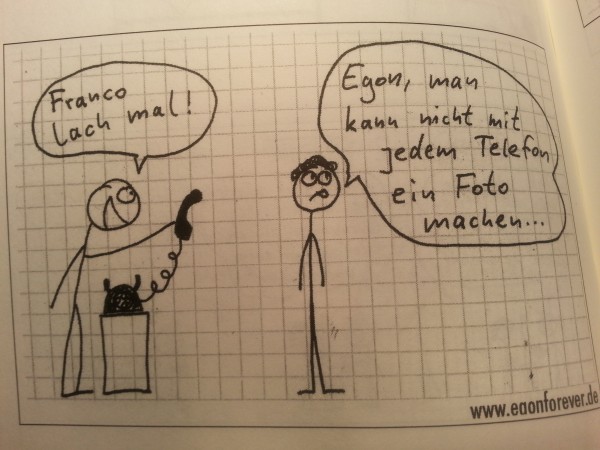 Franco
lach mal!
Egon, man
kann nicht mit
jedem Telefon
ein Foto
machen...
www.egonforever.de